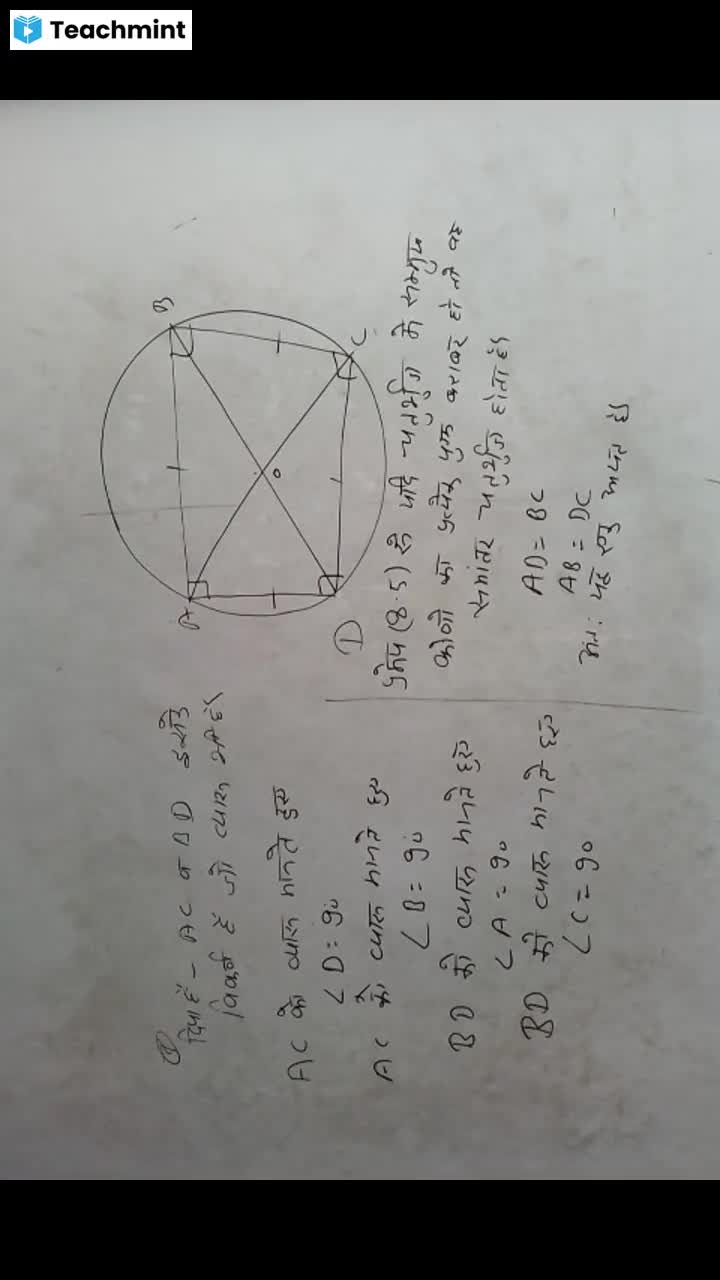 Teachmint
दिया है - AC व BD इसके
विकर्ण हैं जो व्यास भी हैं।
AC को व्यास मानते हुए
∠D = 90
AC को व्यास मानते हुए
∠B = 90
BD को व्यास मानते हुए
∠A = 90
BD को व्यास मानते हुए
∠C = 90
A
B
C
D
O
प्रमेय (8.5) से यदि चतुर्भुज के सम्मुख
कोणों का प्रत्येक युग्म बराबर हो तो वह
समांतर चतुर्भुज होता है।
AD = BC
AB = DC
अतः यह एक आयत है